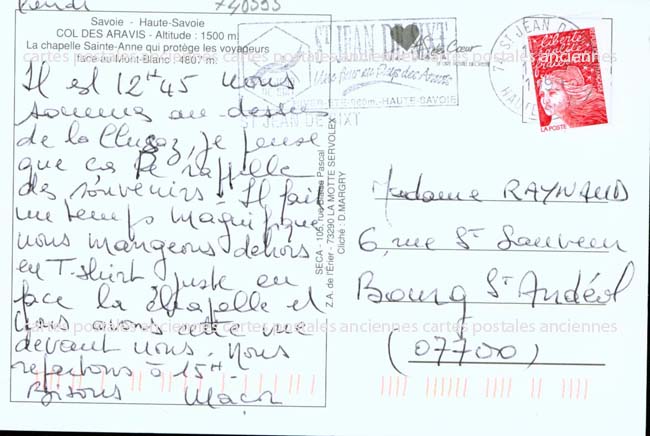 Savoie - Haute-Savoie
COL DES ARAVIS - Altitude : 1500 m.
La chapelle Sainte-Anne qui protège les voyageurs
face au Mont-Blanc - 4807 m.
Il est 12H45 nous
sommes au-dessus
de la Clusaz, je pense
que ça te rappelle
des souvenirs. Il fait
un temps magnifique
nous mangeons dehors
en T.shirt juste en
face la chapelle et
nous avons cette vue
devant nous. Nous
repartons à 15H.
Bisous
SECA - 105, rue Blaise Pascal
Z.A. de l'Érier - 73290 LA MOTTE SERVOLEX
Cliché : D. MARGRY
ST JEAN DE SIXT
Une fleur au Pays des Aravis
HAUTE-SAVOIE
ST JEAN DE SIXT
liberté
égalité
fraternité
LA POSTE
Madame RAYNAUD
6, rue St Sauveur
Bourg St Andéol
(07700)
cartes postales anciennes cartes postales anciennes cartes postales anciennes